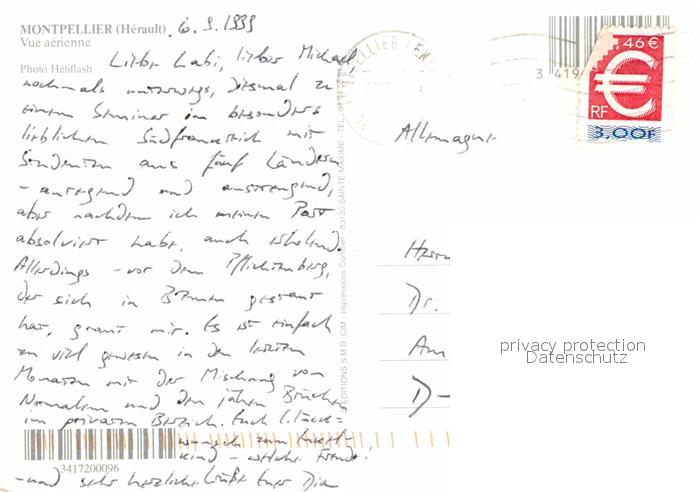 MONTPELLIER (Hérault) 6.9.1999
Vue aérienne
Photo Héliflash
Lieber Labi, lieber Michael,
nochmals unterwegs, diesmal zu
einem Seminar im besonders
lieblichen Südfrankreich mit
Studenten aus fünf Ländern
- anregend und anstrengend,
aber nachdem ich meinen Part
absolviert habe, auch erholend.
Allerdings - vor dem Pflichtenberg,
der sich in Bremen gestaut
hat, graut mir. Es ist einfach
zu viel gewesen in den letzten
Monaten mit der Mischung von
Normalem und den jähen Brüchen
im privaten Bereich. Euch Glück-
wunsch zum Enkel-
kind - welche Freude!
- und sehr herzliche Grüße Eure
3417200096
EDITIONS S.M.D. CIM - Impressions Combier - 83120 SAINTE-MAXIME - TEL.
3 419
0,46 €
€
RF
3,00F
Allemagne
Herrn
Dr.
Am
D-
privacy protection
Datenschutz